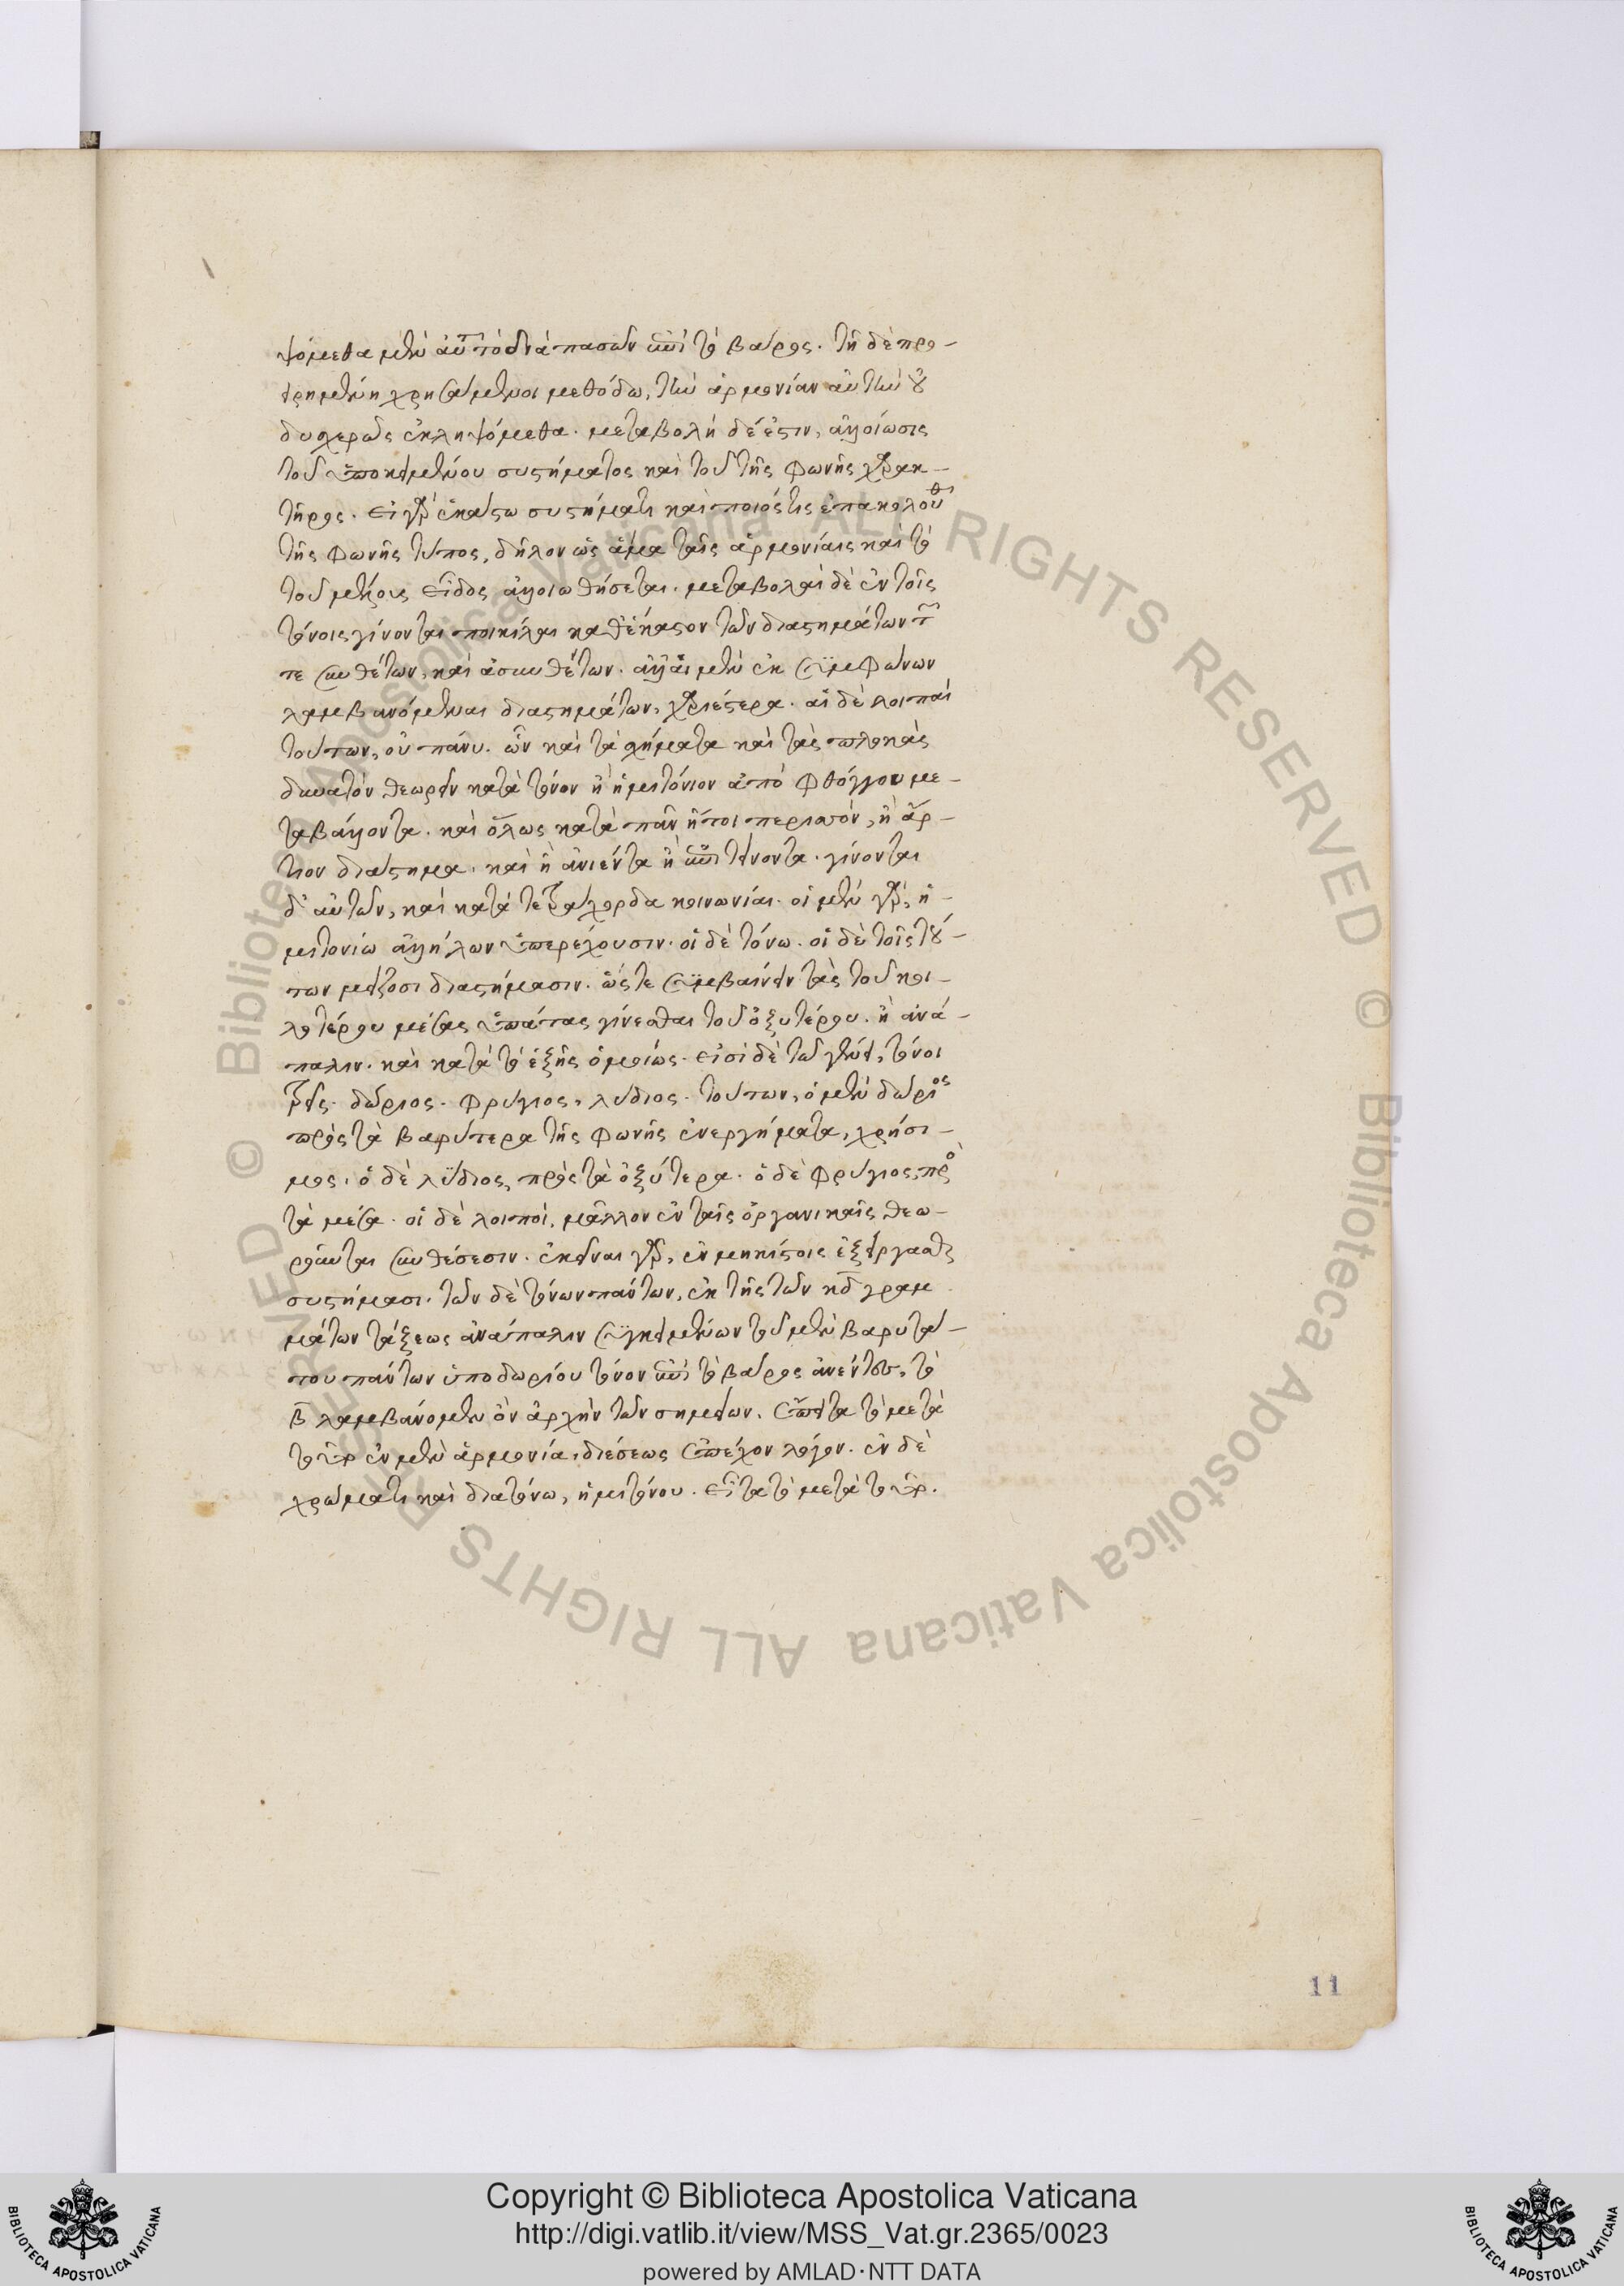 ψόμεθα μὲν αὐτὸ διὰ πασῶν ἐπὶ τὸ βάρος. τῇ δὲ προ-
ειρημένη χρησάμενοι μεθόδω, τὴν ἁρμονίαν αὐτὴν οὐ
δυσχερῶς ἐκληψόμεθα. μεταβολὴ δέ ἐστιν, ἀλλοίωσις
τοῦ ὑποκειμένου συστήματος καὶ τοῦ τῆς φωνῆς χαρακ-
τῆρος. εἰ γὰρ ἑκάστω συστήματι καὶ ποιός τις ἐπακολουθ
τῆς φωνῆς τύπος, δῆλον ὡς ἅμα ταῖς ἁρμονίαις καὶ τὸ
τοῦ μέλους εἶδος ἀλλοιωθήσεται. μεταβολαὶ δὲ ἐν τοῖς
τόνοις γίνονται ποικίλαι καθ' ἕκαστον τῶν διαστημάτων τ
τε συνθέτων, καὶ ἀσυνθέτων. ἀλλ' αἱ μὲν ἐκ συμφώνων
λαμβανόμεναι διαστημάτων, χαριέστεραι. αἱ δὲ λοιπαὶ
τούτων, οὐ πάνυ. ὧν καὶ τὰ σχήματα καὶ τὰς πλοκὰς
δυνατὸν θεωρεῖν κατὰ τόνον ἢ ἡμιτόνιον ἀπὸ φθόγγου με-
ταβάλλοντα. καὶ ὅλως κατὰ πᾶν ἤτοι περιττὸν, ἢ ἄρ-
τιον διάστημα. καὶ ἢ ἀνιέντα ἢ ἐπιτείνοντα. γίνονται
δ' αὐτῶν, καὶ κατὰ τετράχορδα κοινωνίαι. οἱ μὲν γὰρ, ἡ-
μιτονίω ἀλλήλων ὑπερέχουσιν. οἱ δὲ τόνω. οἱ δὲ τοῖς τού-
των μείζοσι διαστήμασιν. ὥς τε συμβαίνειν τὰς τοῦ κοι-
λοτέρου μέσας ὑπάτας γίνεσθαι τοῦ ὀξυτέρου. ἢ ἀνά-
παλιν. καὶ κατὰ τὸ ἑξῆς ὁμοίως. εἰσὶ δὲ τῶ γένει, τόνοι
τρεῖς. δώριος. φρύγιος, λύδιος. τούτων, ὁ μὲν δώριος
πρὸς τὰ βαρύτερα τῆς φωνῆς ἐνεργήματα, χρήσι-
μος. ὁ δὲ λύδιος, πρὸς τὰ ὀξύτερα. ὁ δὲ φρύγιος, πρὸ
τὰ μέσα. οἱ δὲ λοιποὶ, μᾶλλον ἐν ταῖς ὀργανικαῖς θεω-
ροῦνται συνθέσεσιν. ἐκεῖναι γὰρ, ἐν μηκίστοις ἐξείργασται
συστήμασι. τῶν δὲ τόνων πάντων, ἐκ τῆς τῶν κδ γραμ
μάτων τάξεως ἀνάπαλιν συγκειμένων τοῦ μὲν βαρυτά-
του πάντων ὑποδωρίου τόνον ἐπὶ τὸ βάρος ἀνέντες, τὸ
β λαμβάνομεν ὂν ἀρχὴν τῶν σημείων. ἔπειτα τὸ μετὰ
τοῦτο ἐν μὲν ἁρμονία, διέσεως ἐπέχον λόγον. ἐν δὲ
χρώματι καὶ διατόνω, ἡμιτόνου. εἶτα τὸ μετὰ τοῦτο.
11
Copyright © Biblioteca Apostolica Vaticana
http://digi.vatlib.it/view/MSS_Vat.gr.2365/0023
powered by AMLAD·NTT DATA